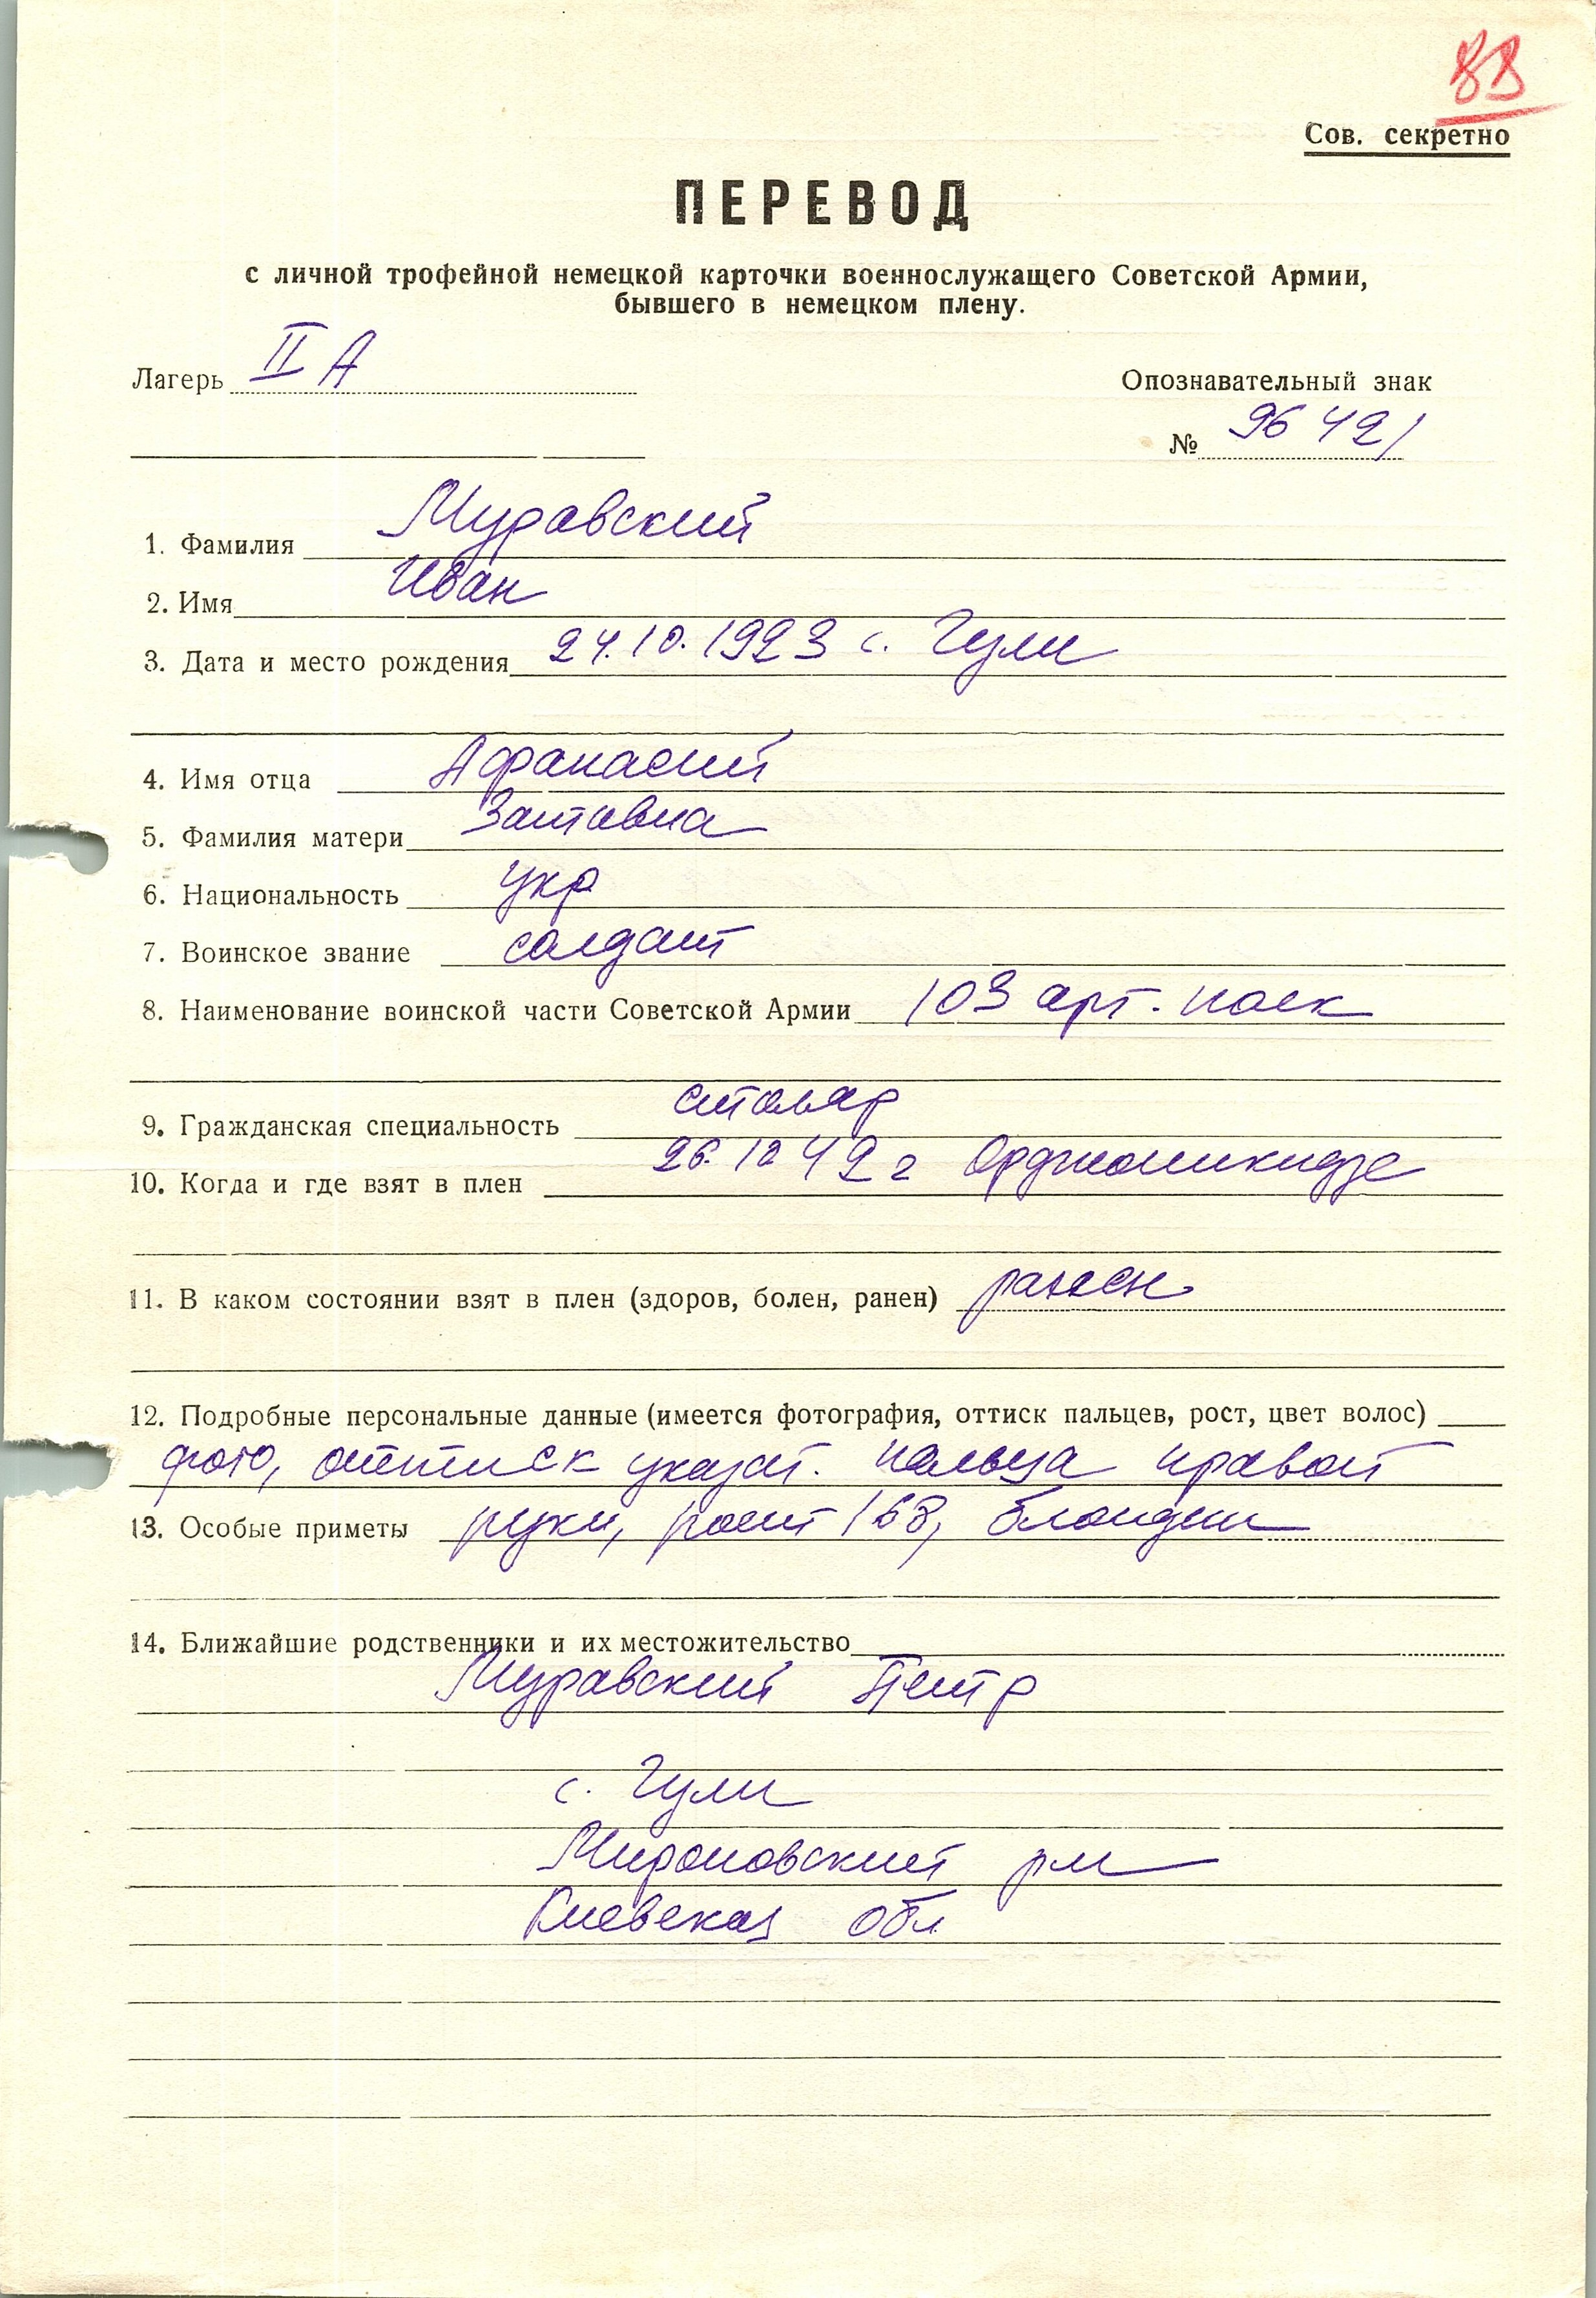 88
Сов. секретно
ПЕРЕВОД
с личной трофейной немецкой карточки военнослужащего Советской Армии,
бывшего в немецком плену.
Лагерь II А
Опознавательный знак
№ 96421
1. Фамилия Муравский
2. Имя Иван
3. Дата и место рождения 24.10.1923 с. Гули
4. Имя отца Афанасий
5. Фамилия матери Заставна
6. Национальность укр
7. Воинское звание солдат
8. Наименование воинской части Советской Армии 103 арт. полк
9. Гражданская специальность столяр
10. Когда и где взят в плен 26.10 42 г Орджоникидзе
11. В каком состоянии взят в плен (здоров, болен, ранен) ранен
12. Подробные персональные данные (имеется фотография, оттиск пальцев, рост, цвет волос)
фото, оттиск указат. пальца правой
13. Особые приметы руки, рост 168, блондин
14. Ближайшие родственники и их местожительство
Муравский Петр
с. Гули
Мироновский рн
Киевская обл